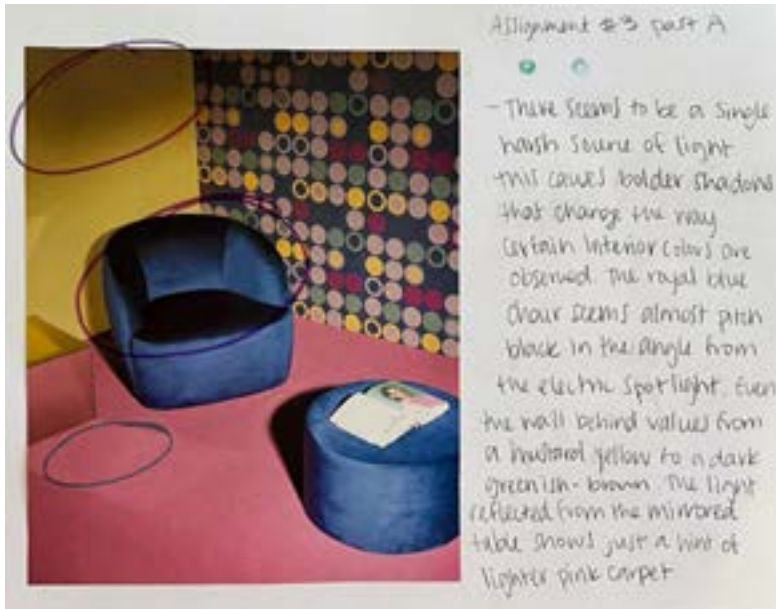 Assignment #3 part A
- There seems to be a single
harsh source of light
this causes bolder shadows
that change the way
certain interior colors are
observed. The royal blue
chair seems almost pitch
black in the angle from
the electric spotlight. Even
the wall behind values from
a mustard yellow to a dark
greenish-brown. The light
reflected from the mirrored
table shows just a hint of
lighter pink carpet